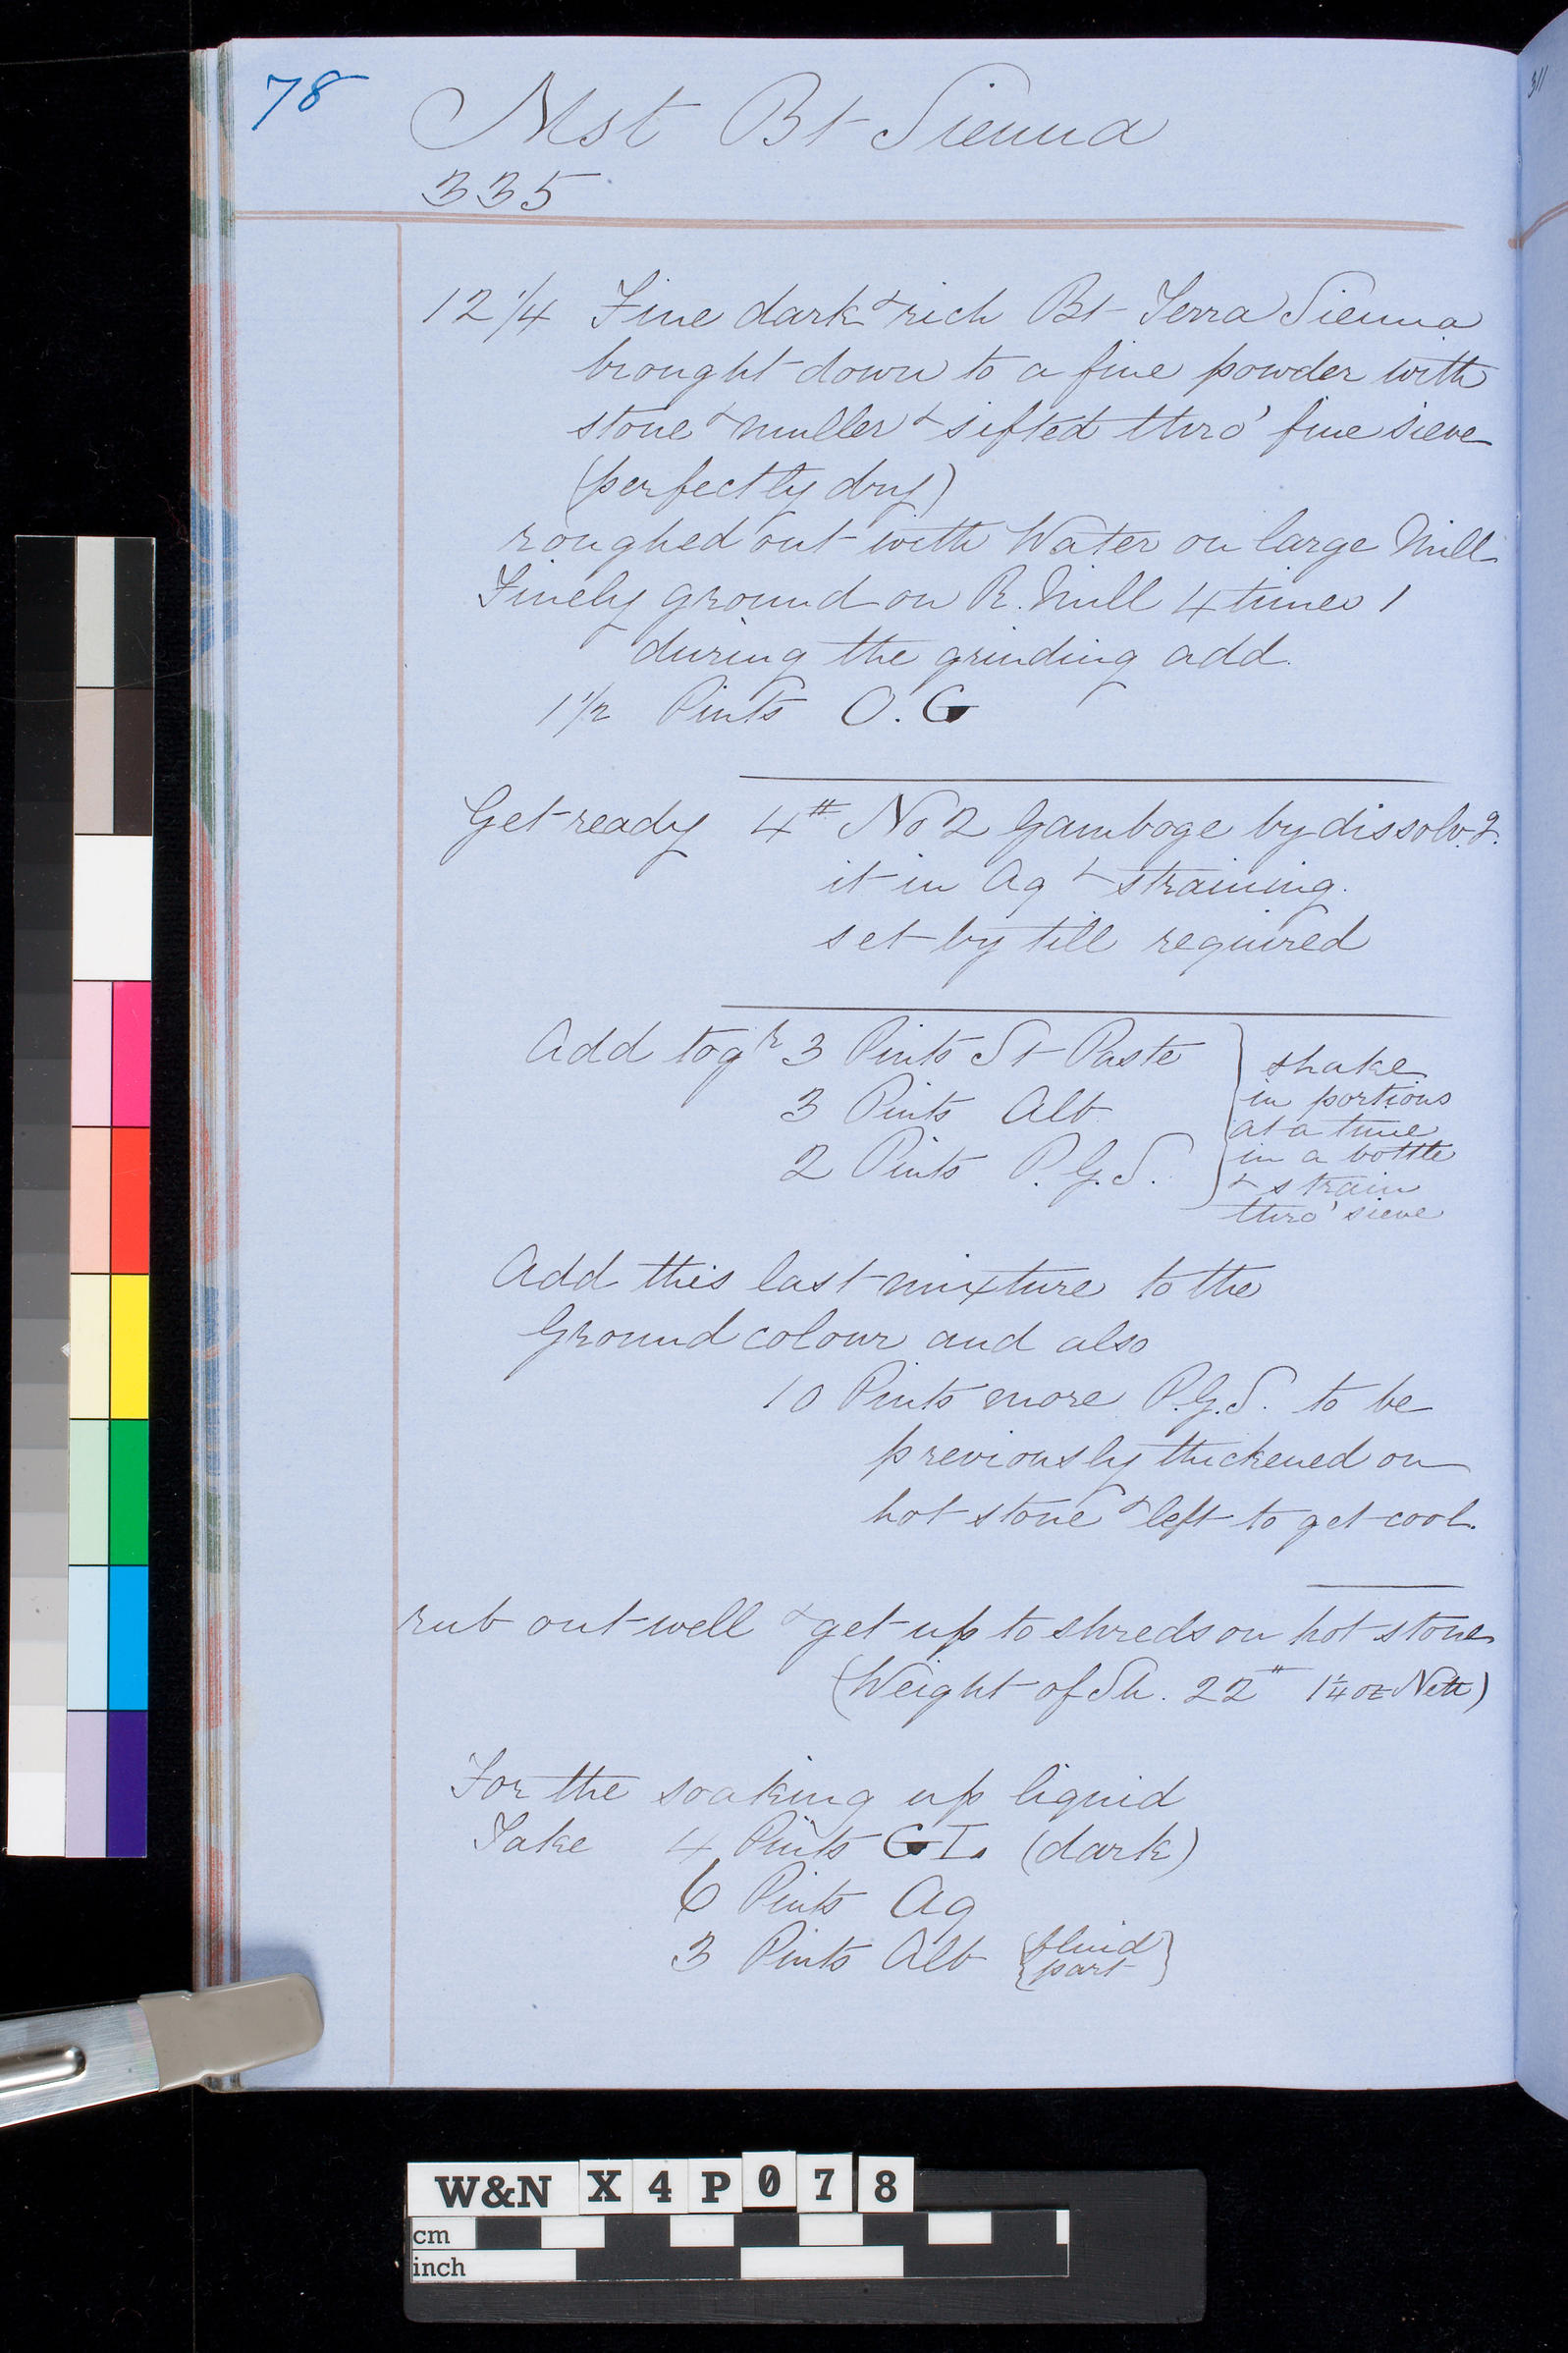 78
Mst Bt Sienna
335
12 1/4 Fine dark & rich Bt Terra Sienna
brought down to a fine powder with
stone & muller & sifted thro' fine sieve
(perfectly dry)
roughed out with Water on large Mill
Finely ground on R. Mill 4 times 1
during the grinding add.
1 1/2 Pints O.G
Get ready 4# No 2 Gamboge by dissolv.g.
it in Aq & straining.
set by till required
Add togr 3 Pints St Paste
3 Pints Alb
2 Pints P.G.S.
shake
in portions
at a time
in a bottle
& strain
thro' sieve
Add this last mixture to the
Ground colour and also
10 Pints more P.G.S. to be
previously thickened on
hot stone & left to get cool.
rub out well & get up to shreds on hot stone
(Weight of Sh. 22# 1 1/4 oz Nett)
For the soaking up liquid
Take 4 Pints GI. (dark)
6 Pints Aq
3 Pints Alb {fluid
part}
W&N X4P078
cm
inch